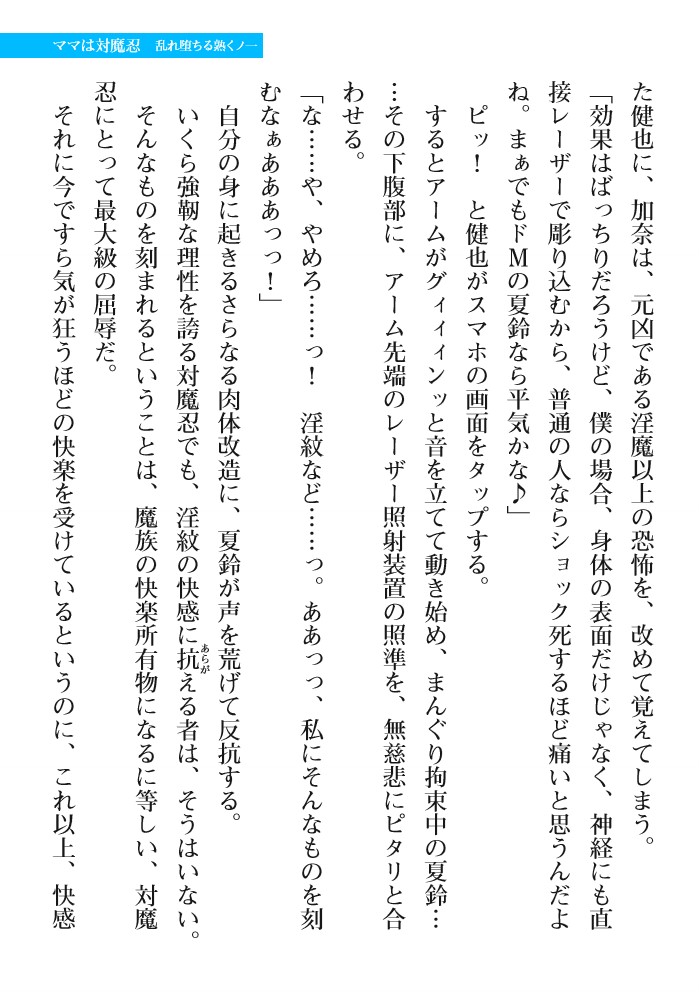 ママは対魔忍 乱れ堕ちる熟くノ一
た健也に、加奈は、元凶である淫魔以上の恐怖を、改めて覚えてしまう。
「効果はばっちりだろうけど、僕の場合、身体の表面だけじゃなく、神経にも直
接レーザーで彫り込むから、普通の人ならショック死するほど痛いと思うんだよ
ね。まぁでもドMの夏鈴なら平気かな♪」
ピッ！ と健也がスマホの画面をタップする。
するとアームがグィィィンッと音を立てて動き始め、まんぐり拘束中の夏鈴…
…その下腹部に、アーム先端のレーザー照射装置の照準を、無慈悲にピタリと合
わせる。
「な……や、やめろ……っ！ 淫紋など……っ。ああっっ、私にそんなものを刻
むなぁあああっっ！」
自分の身に起きるさらなる肉体改造に、夏鈴が声を荒げて反抗する。
いくら強靭な理性を誇る対魔忍でも、淫紋の快感に抗える者は、そうはいない。
あらが
そんなものを刻まれるということは、魔族の快楽所有物になるに等しい、対魔
忍にとって最大級の屈辱だ。
それに今ですら気が狂うほどの快楽を受けているというのに、これ以上、快感